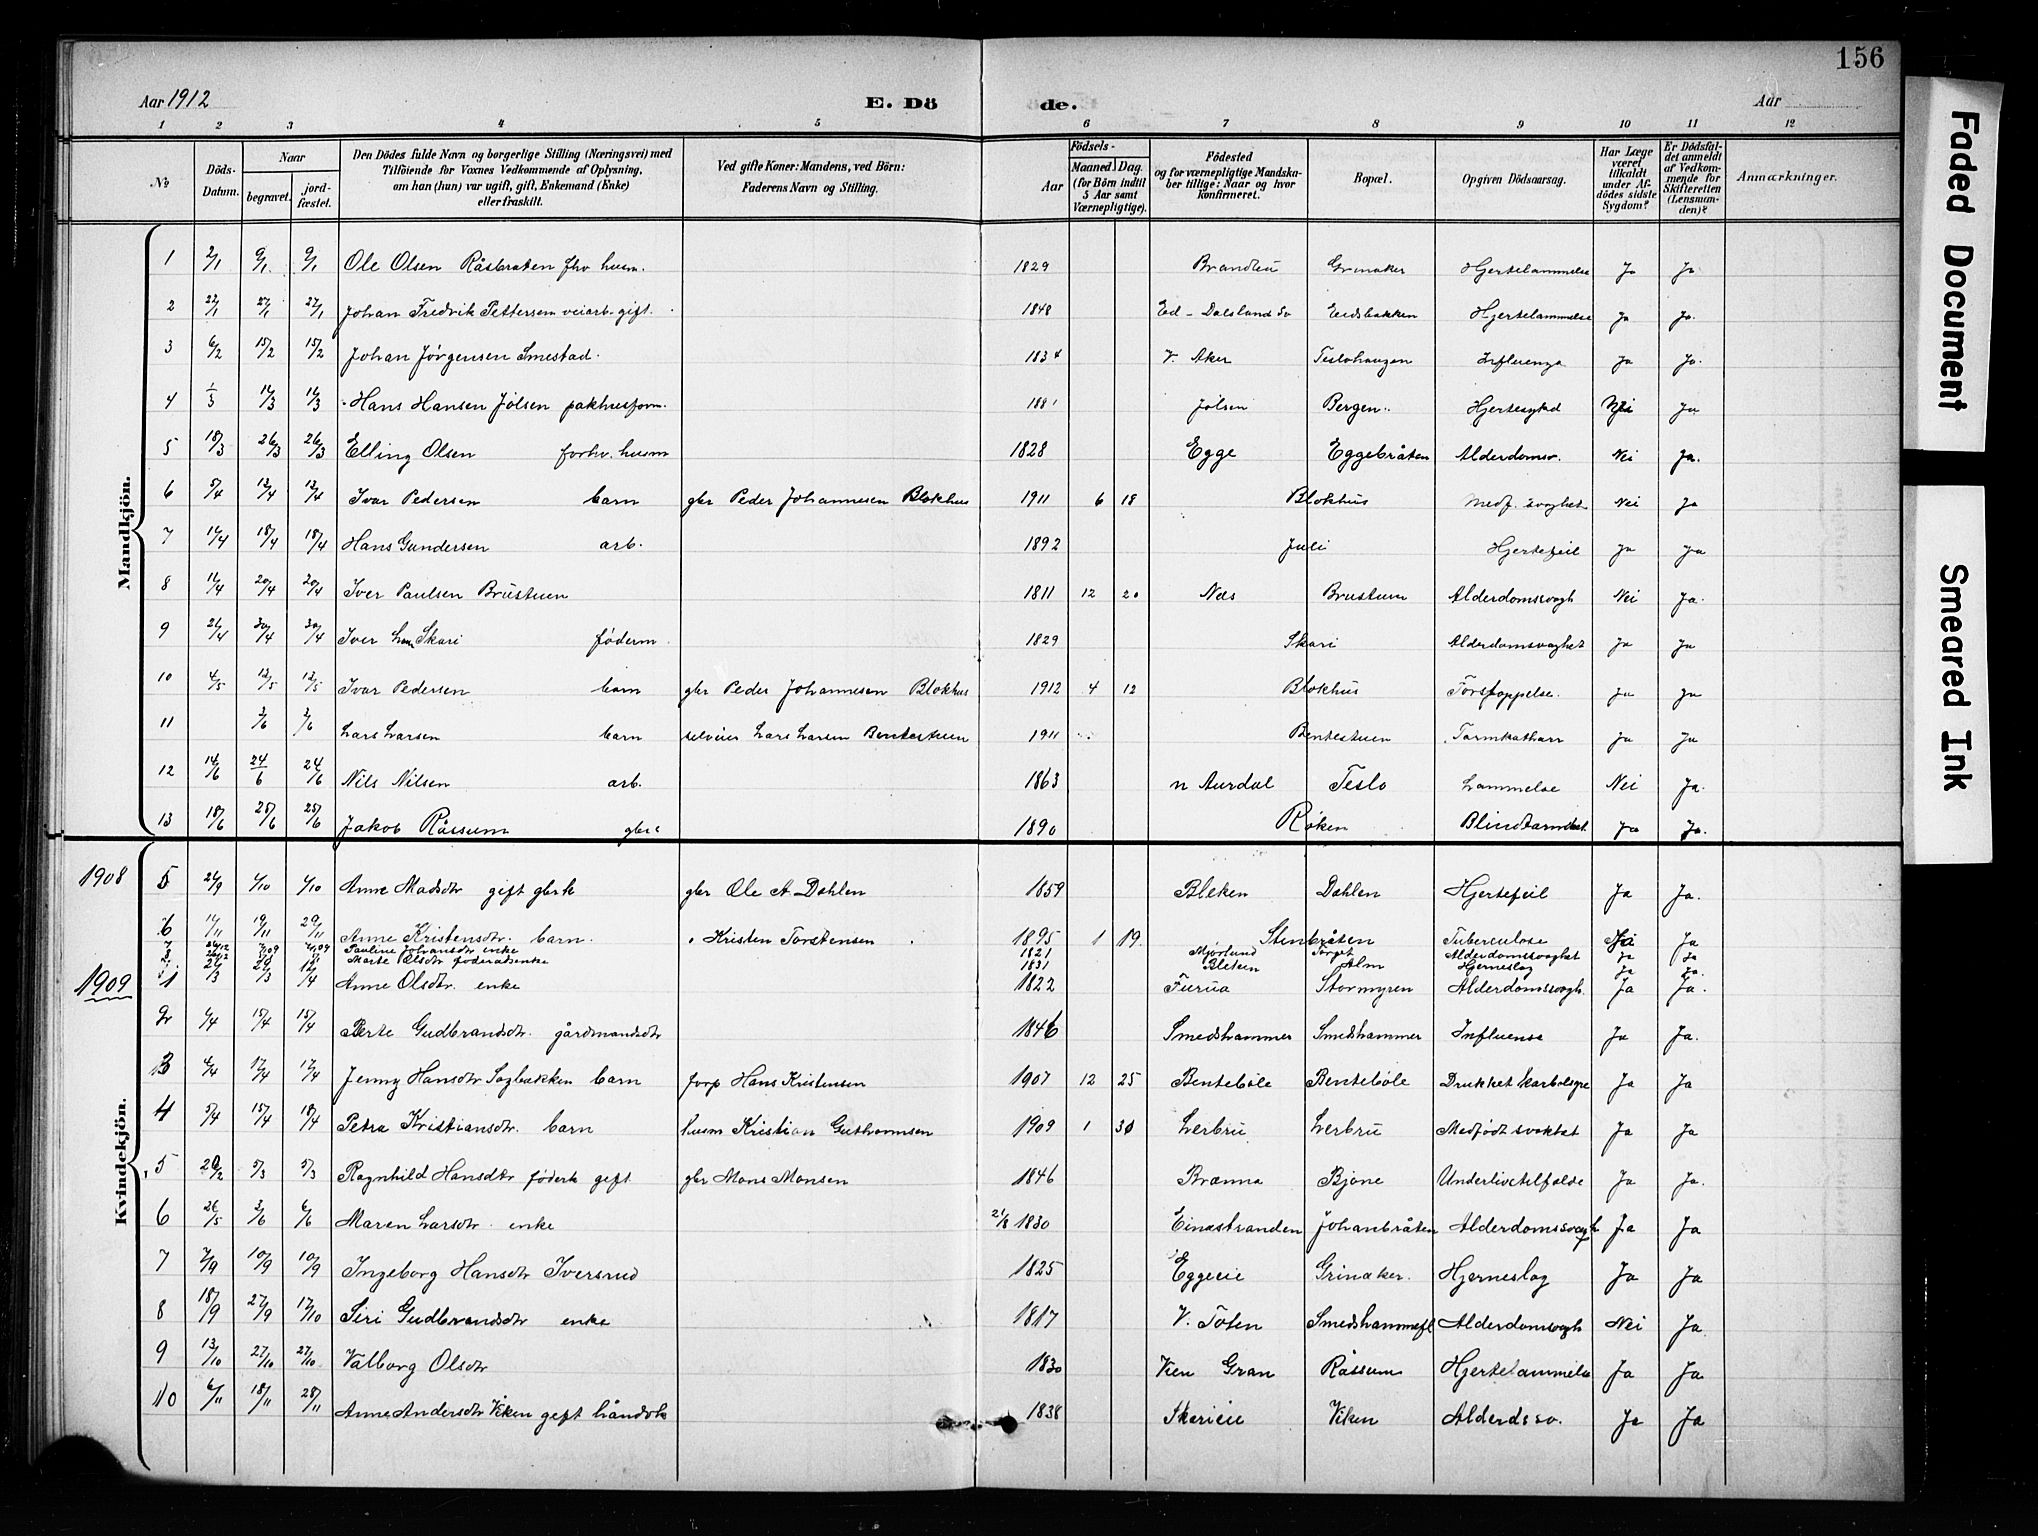 156
Aar 1912 E. Dö de. Aar
1 2 3 4 5 6 7 8 9 10 11 12
№ Döds-Datum. Naar begravet. jordfæstet. Den Dödes fulde Navn og borgerlige Stilling (Næringsvei) med Tilföiende for Voxnes Vedkommende af Oplysning, om han (hun) var ugift, gift, Enkemand (Enke) eller fraskilt. Ved gifte Koner: Mandens, ved Börn: Faderens Navn og Stilling. Födsels- Aar Maaned Dag. (for Börn indtil 5 Aar samt Værnepligtige). Födested og for værnepligtige Mandskaber tillige: Naar og hvor Konfirmeret. Bopæl. Opgiven Dödsaarsag. Har Læge været tilkaldt under Afdödes sidste Sygdom? Er Dödsfaldet anmeldt af Vedkommende for Skifteretten (Lensmanden)? Anmærkninger.
Mandkjön.
1 2/1 9/1 9/1 Ole Olsen Råsbraten fhv husm. 1829 Brandbu Grinaker Hjertelammelse Ja Ja
2 22/1 27/1 27/1 Johan Fredrik Pettersen veiarb. gift. 1848 Ed - Dalsland Sv Eidsbakken Hjertelammelse Ja Ja.
3 6/2 15/2 15/2 Johan Jørgensen Smestad. 1834 V. Aker Teslohaugen Influenza Ja Ja.
4 1/3 14/3 14/3 Hans Hansen Jølsen pakhusform. 1881 Jølsen Bergen Hjertesykd Nei Ja
5 18/3 26/3 26/3 Elling Olsen forhv. husm 1828 Egge Eggebråten Alderdomsv. Nei Ja.
6 5/4 12/4 12/4 Ivar Pedersen barn gbr Peder Johannesen Blokhus 1911 6 18 Blokhus Medf. svaghet Nei Ja
7 14/4 18/4 18/4 Hans Gundersen arb. 1892 Juli Hjertefeil Ja Ja
8 14/4 20/4 20/4 Iver Paulsen Brustuen 1811 12 20 Næs Brustuen Alderdomssvagh Nei Ja.
9 21/4 30/4 30/4 Iver Skari føderm. 1829 Skari Alderdomsvaghet Ja Ja
10 4/5 12/5 12/5 Ivar Pedersen barn gbr Peder Johannesen Blokhus 1912 4 12 Blokhus Forstoppelse. Ja Ja
11 3/6 3/6 Lars Larsen barn selveier Lars Larsen Bentestuen 1911 Bentestuen Tarmkatharr Ja Ja
12 14/6 24/6 24/6 Nils Nilsen arb. 1863 n Aurdal Teslo Lammelse Nei Ja.
13 18/6 25/6 25/6 Jakob Råssum gbr 1890 Røken Blindtarmbet. Ja Ja.
Kvindekjön.
1908 5 24/9 1/10 1/10 Anne Madsdtr gift gbrk gbr Ole A. Dahlen 1859 Bleken Dahlen Hjertefeil Ja Ja.
6 11/11 19/11 29/11 Anne Kristensdtr. barn. Kristen Torstensen 1895 1 19. Stenbråten Tuberculose Ja
7 26/12 Pauline Johansdtr enke 1821 Mjørlund Torget Alderdomssvaghet Ja Ja
Marte Olsdtr føderådsenke 1831 Bleken Alm Hjerneslag Ja Ja.
1909 1 Anne Olsdtr. enke 1822 Furua Stormyren Alderdomssvagh. Ja Ja.
2 6/4 15/4 15/4 Berte Gudbrandsdtr. gårdmandsdtr 1846 Smedshammer Smedshammer Influensa Ja Ja.
3 4/4 17/4 17/4 Jenny Hansdtr Sagbakken barn forp Hans Kristensen 1907 12 25 Bentebøle Bentebøle Drukket karbolsyre Ja Ja
4 5/4 15/4 18/4 Petra Kristiansdtr. barn husm Kristian Guthormsen 1909 1 30 Lerbru Lerbru Medfødt svakhet Ja Ja
5 20/2 5/3 5/3 Ragnhild Hansdtr føderk gift gbr Mons Monsen 1846 Brænna Bjøne Underlivstilfælde Ja Ja.
6 26/5 3/6 6/6 Maren Larsdtr. enke 21/8 1830 Einastranden Johanbråten Alderdomssvagh Ja Ja
7 2/9 10/9 10/9 Ingeborg Hansdtr Iversrud 1825 Eggeeie Grinaker. Hjerneslag Ja Ja
8 18/9 27/9 17/10 Siri Gudbrandsdtr enke 1817 V. Toten Alderdomsvagh Nei Ja
9 13/10 27/10 27/10 Valborg Olsdtr 1830 Vien Gran Råssum Hjertelammelse Ja Ja
10 6/11 18/11 28/11 Anne Andersdtr Viken gift håndvk 1838 Skarieie Viken Alderdssv. Ja Ja
Faded Document
Smeared Ink